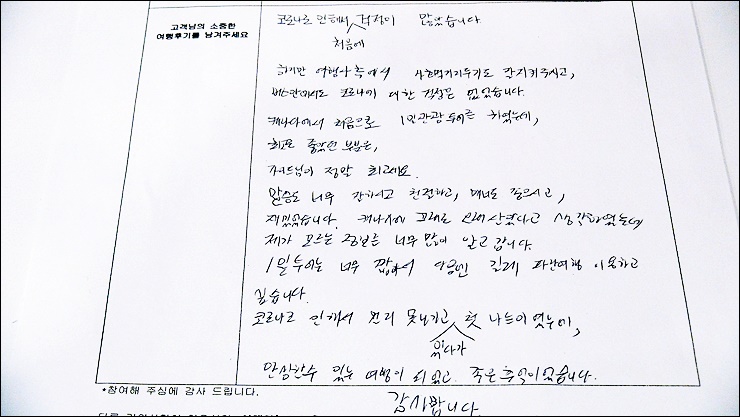 고객님의 소중한
여행후기를 남겨주세요
코로나로 인해서 처음에 걱정이 많았습니다
하지만 여행사측에서 사회적거리두기도 잘지켜주시고,
버스안에서도 코로나에 대한 걱정은 없었습니다.
캐나다에서 처음으로 1일관광 투어를 하였는데,
최고 좋았던 부분은,
가이드님이 정말 최고네요.
말씀도 너무 잘하시고 친절하고, 매너도 좋으시고,
재밌었습니다. 캐나다에 그래도 오래 살았다고 생각하였는데
제가 모르는 정보를 너무 많이 알고 갑니다.
1일 투어는 너무 짧아서 다음엔 길게 여행 이용하고
싶습니다.
코로나로 인해서 멀리 못나가고 있다가 첫 나들이였는데,
안심할수 있는 여행이 되었고 좋은추억이었습니다.
감사합니다
*참여해 주심에 감사 드립니다.